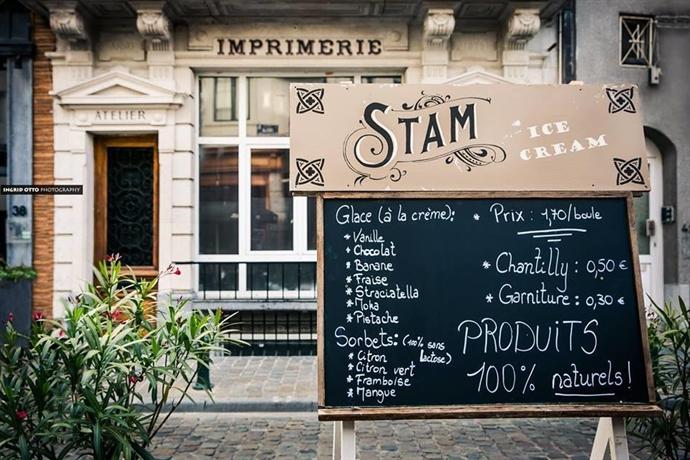 IMPRIMERIE
ATELIER
INGRID OTTO PHOTOGRAPHY
38
STAM
ICE
CREAM
Glace (à la crème):
* Vanille
* Chocolat
* Banane
* Fraise
* Straciatella
* Moka
* Pistache
Sorbets: (100% sans
Lactose)
* Citron
* Citron vert
* Framboise
* Mangue
* Prix : 1,70/boule
* Chantilly : 0,50 €
* Garniture : 0,30 €
PRODUITS
100% naturels!